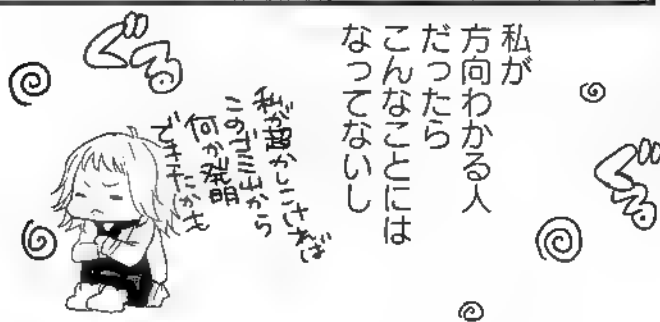 私が
方向わかる人
だったら
こんなことには
なってないし
ぐる
ぐる
私が超かしこければ
このゴミ山から
何か発明
できてたかも